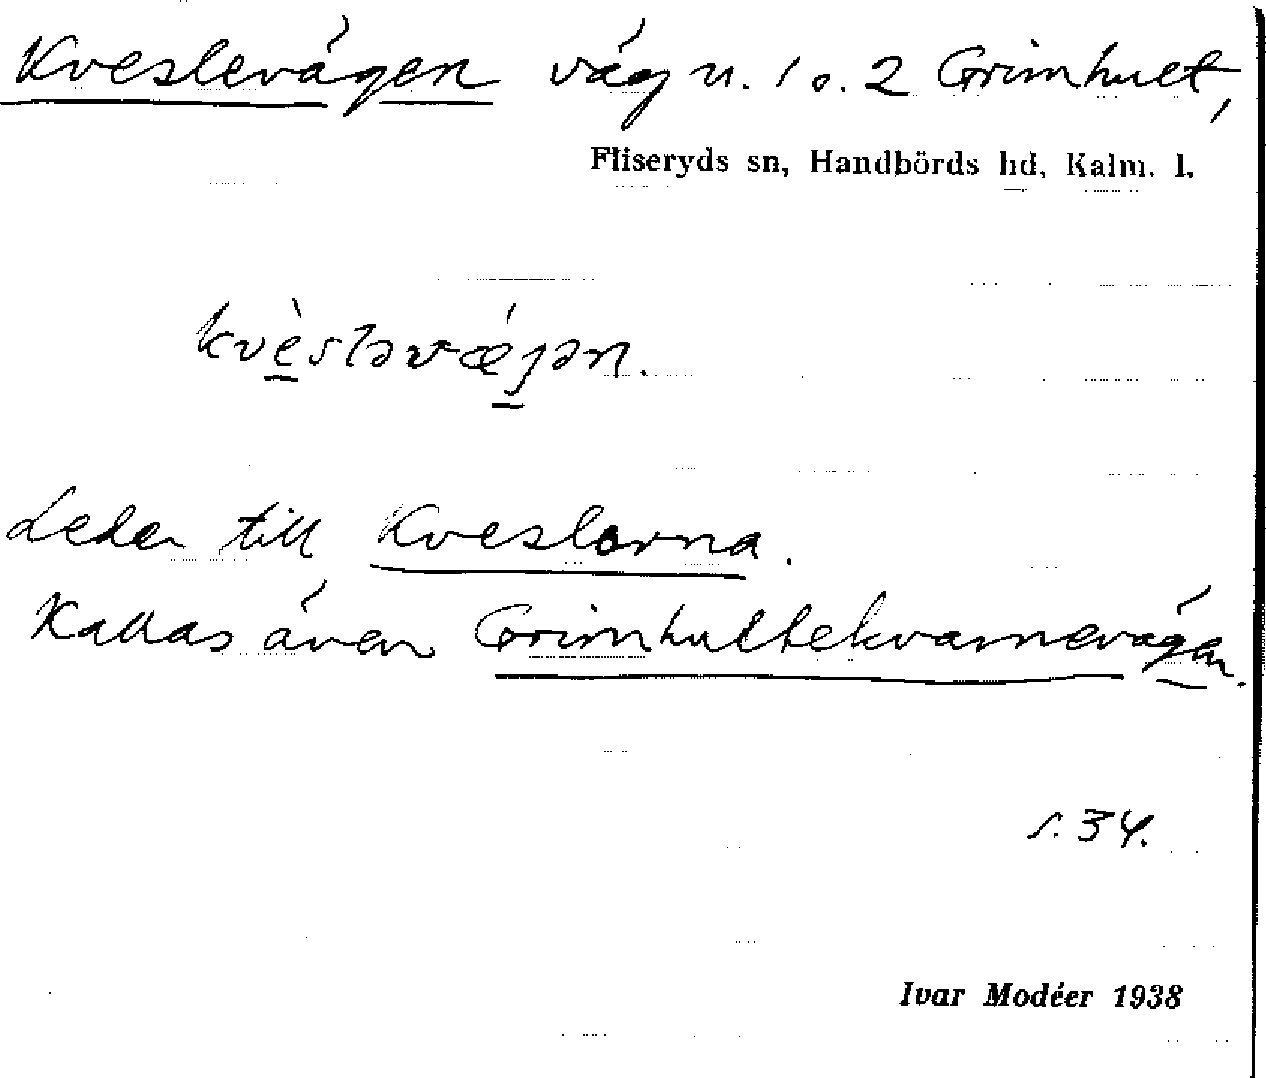 Kveslevägen väg n. 1 o. 2 Grimhult,
Fliseryds sn, Handbörds hd, Kalm. l.
kvèsləvǽjən.
Leder till Kveslorna.
Kallas även Grimhultekvarnevägen.
s. 34.
Ivar Modéer 1938